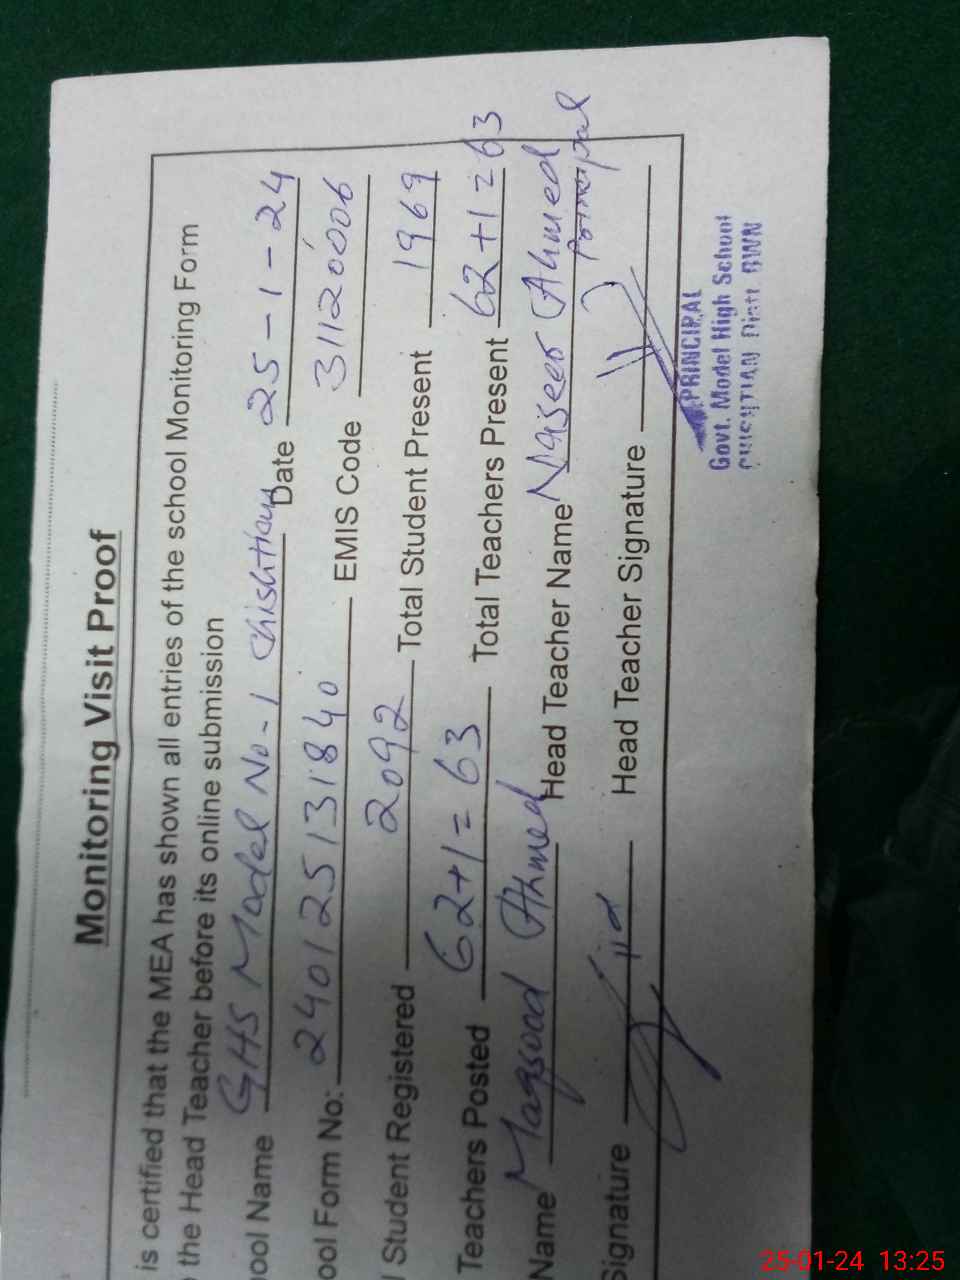 Monitoring Visit Proof
is certified that the MEA has shown all entries of the school Monitoring Form
the Head Teacher before its online submission
ool Name GHS Model No-1 Chishtian Date 25-1-24
ool Form No: 240125131840 EMIS Code 31120006
l Student Registered 2092 Total Student Present 1969
Teachers Posted 62+1=63 Total Teachers Present 62+1=63
Name Maqsood Ahmed Head Teacher Name Naseer Ahmed
Principal
Signature Head Teacher Signature
PRINCIPAL
Govt. Model High School
CHISHTIAN Distt. BWN
25-01-24 13:25